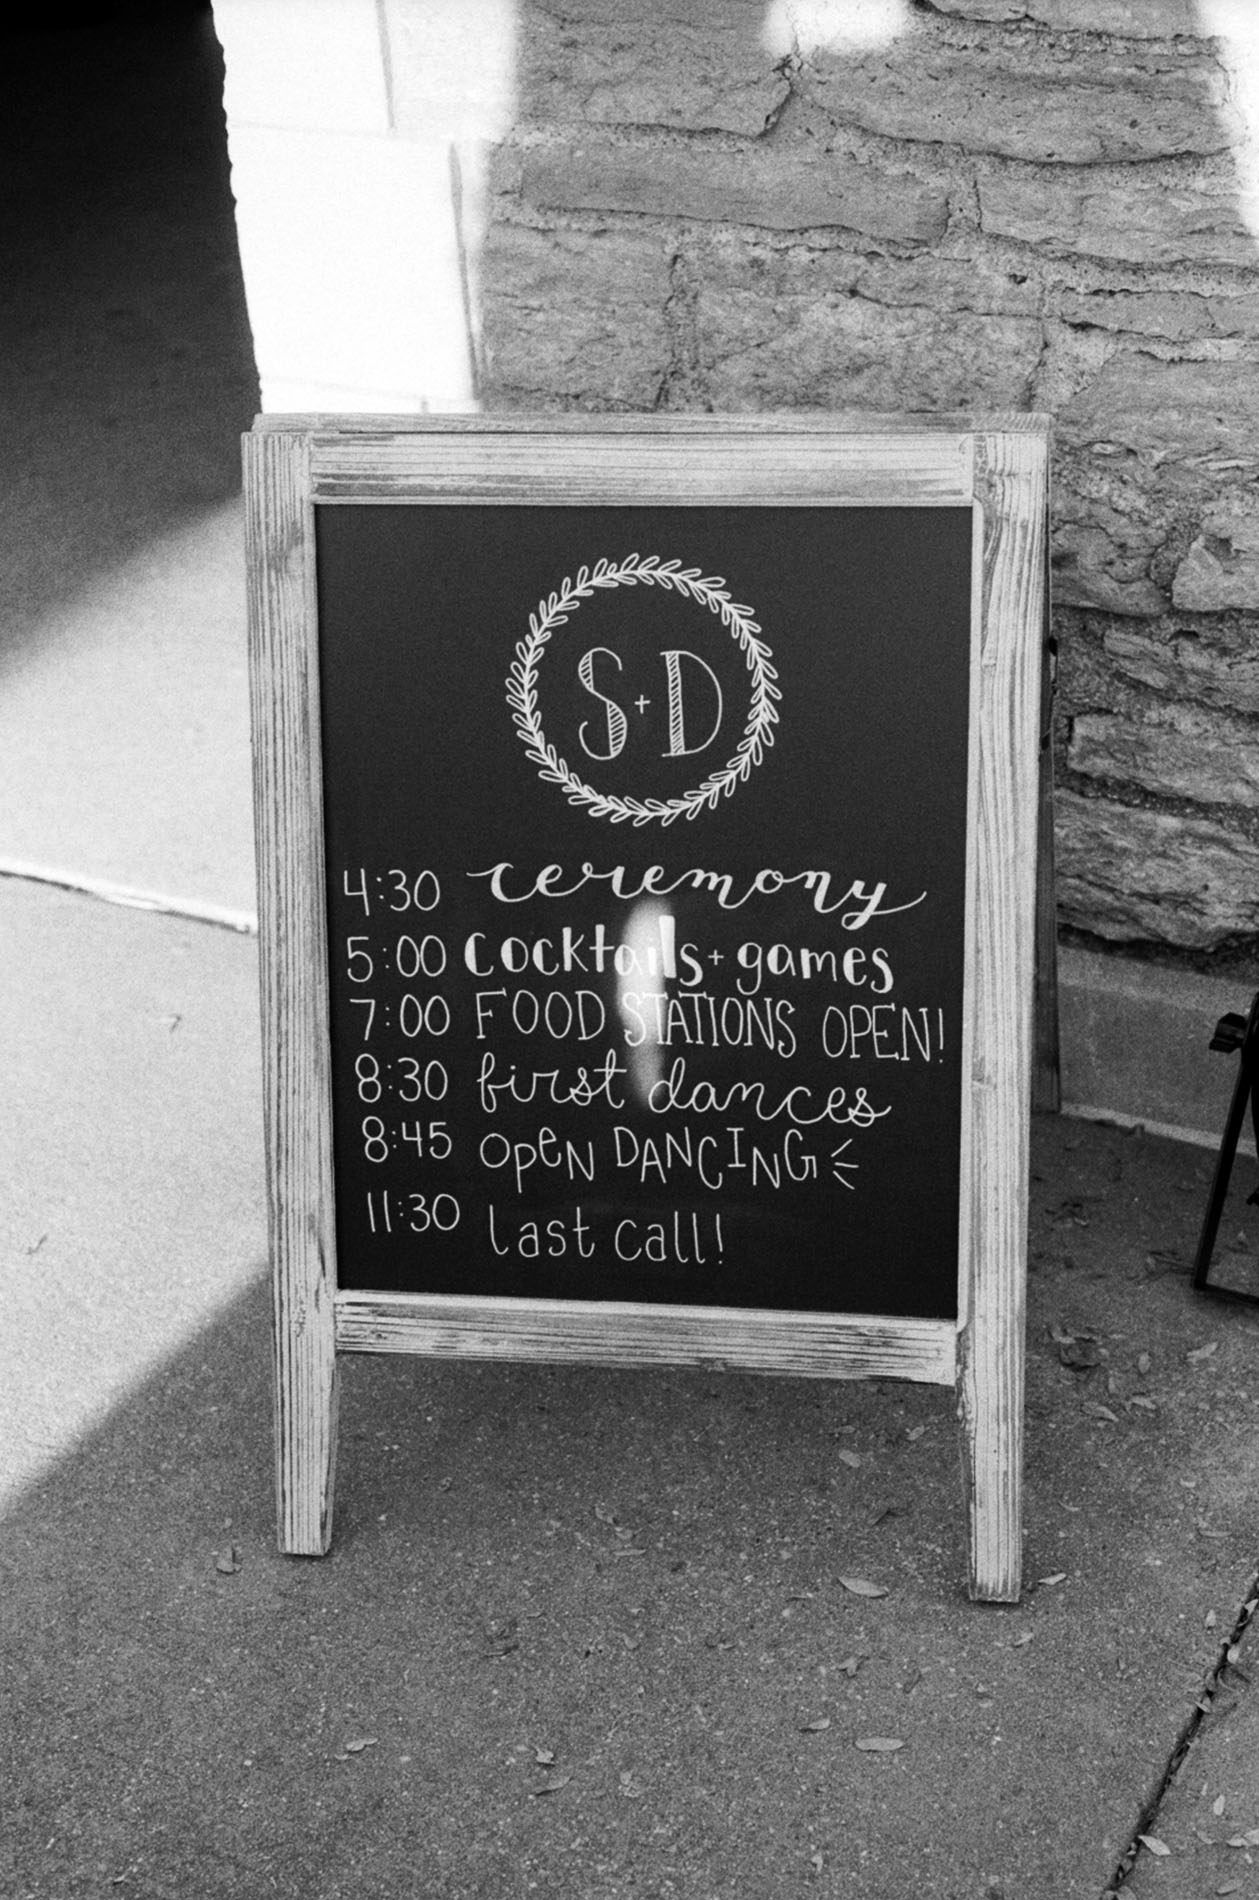 S+D
4:30 ceremony
5:00 Cocktails + games
7:00 FOOD STATIONS OPEN!
8:30 first dances
8:45 open DANCING
11:30 last call!